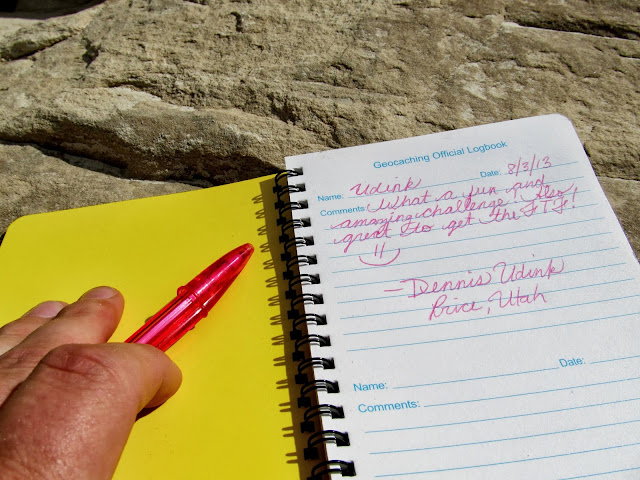 Geocaching Official Logbook
Name: Udink Date: 8/3/13
Comments: What a fun and
amazing challenge! Also,
great to get the FTF!
—Dennis Udink
Price, Utah
Name: Date:
Comments: